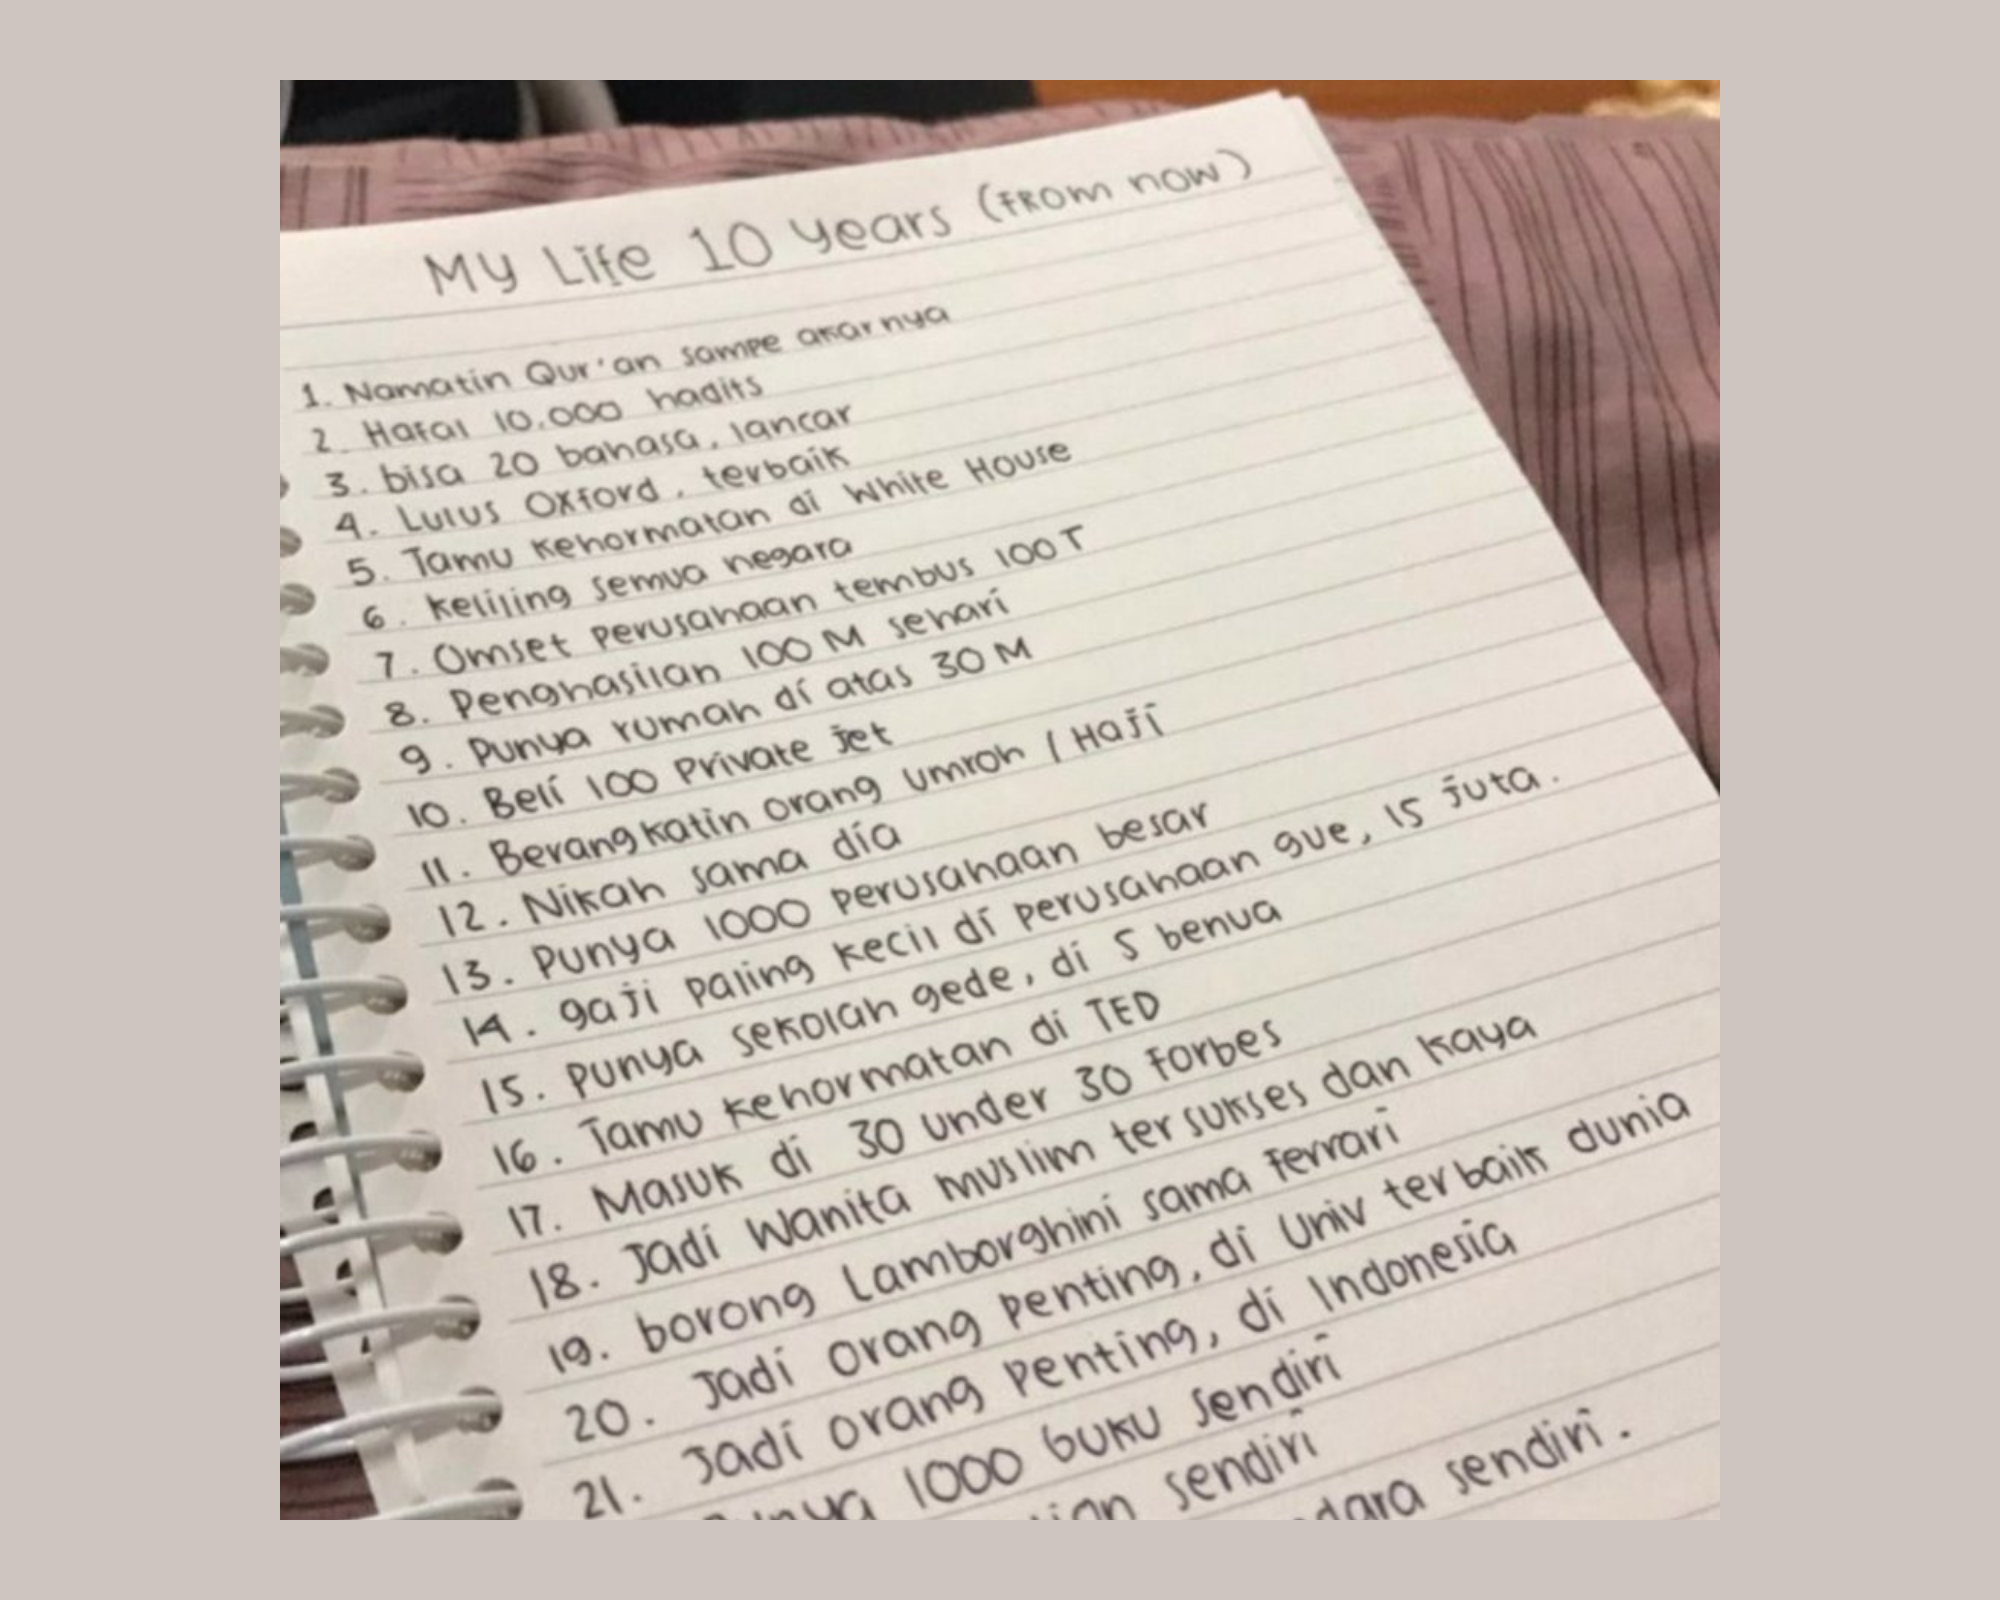 My Life 10 Years (From now)
1. Namatin Qur'an sampe akarnya
2. Hafal 10.000 hadits
3. bisa 20 bahasa, lancar
4. Lulus Oxford, terbaik
5. Tamu kehormatan di White House
6. keliling semua negara
7. Omset perusahaan tembus 100 T
8. Penghasilan 100 M sehari
9. Punya rumah di atas 30 M
10. Beli 100 Private jet
11. Berangkatin orang umroh / Haji
12. Nikah sama dia
13. Punya 1000 perusahaan besar
14. gaji paling kecil di perusahaan gue, 15 juta.
15. punya sekolah gede, di 5 benua
16. Tamu kehormatan di TED
17. Masuk di 30 under 30 Forbes
18. Jadi wanita muslim tersukses dan kaya
19. borong Lamborghini sama Ferrari
20. Jadi orang penting, di Univ terbaik dunia
21. Jadi orang penting, di Indonesia
1000 buku sendiri
sendiri
sendiri.